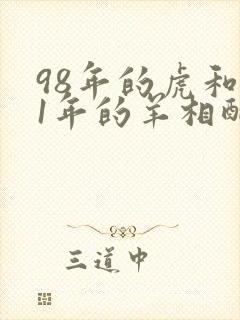 98年的虎和
1年的羊相
三道中